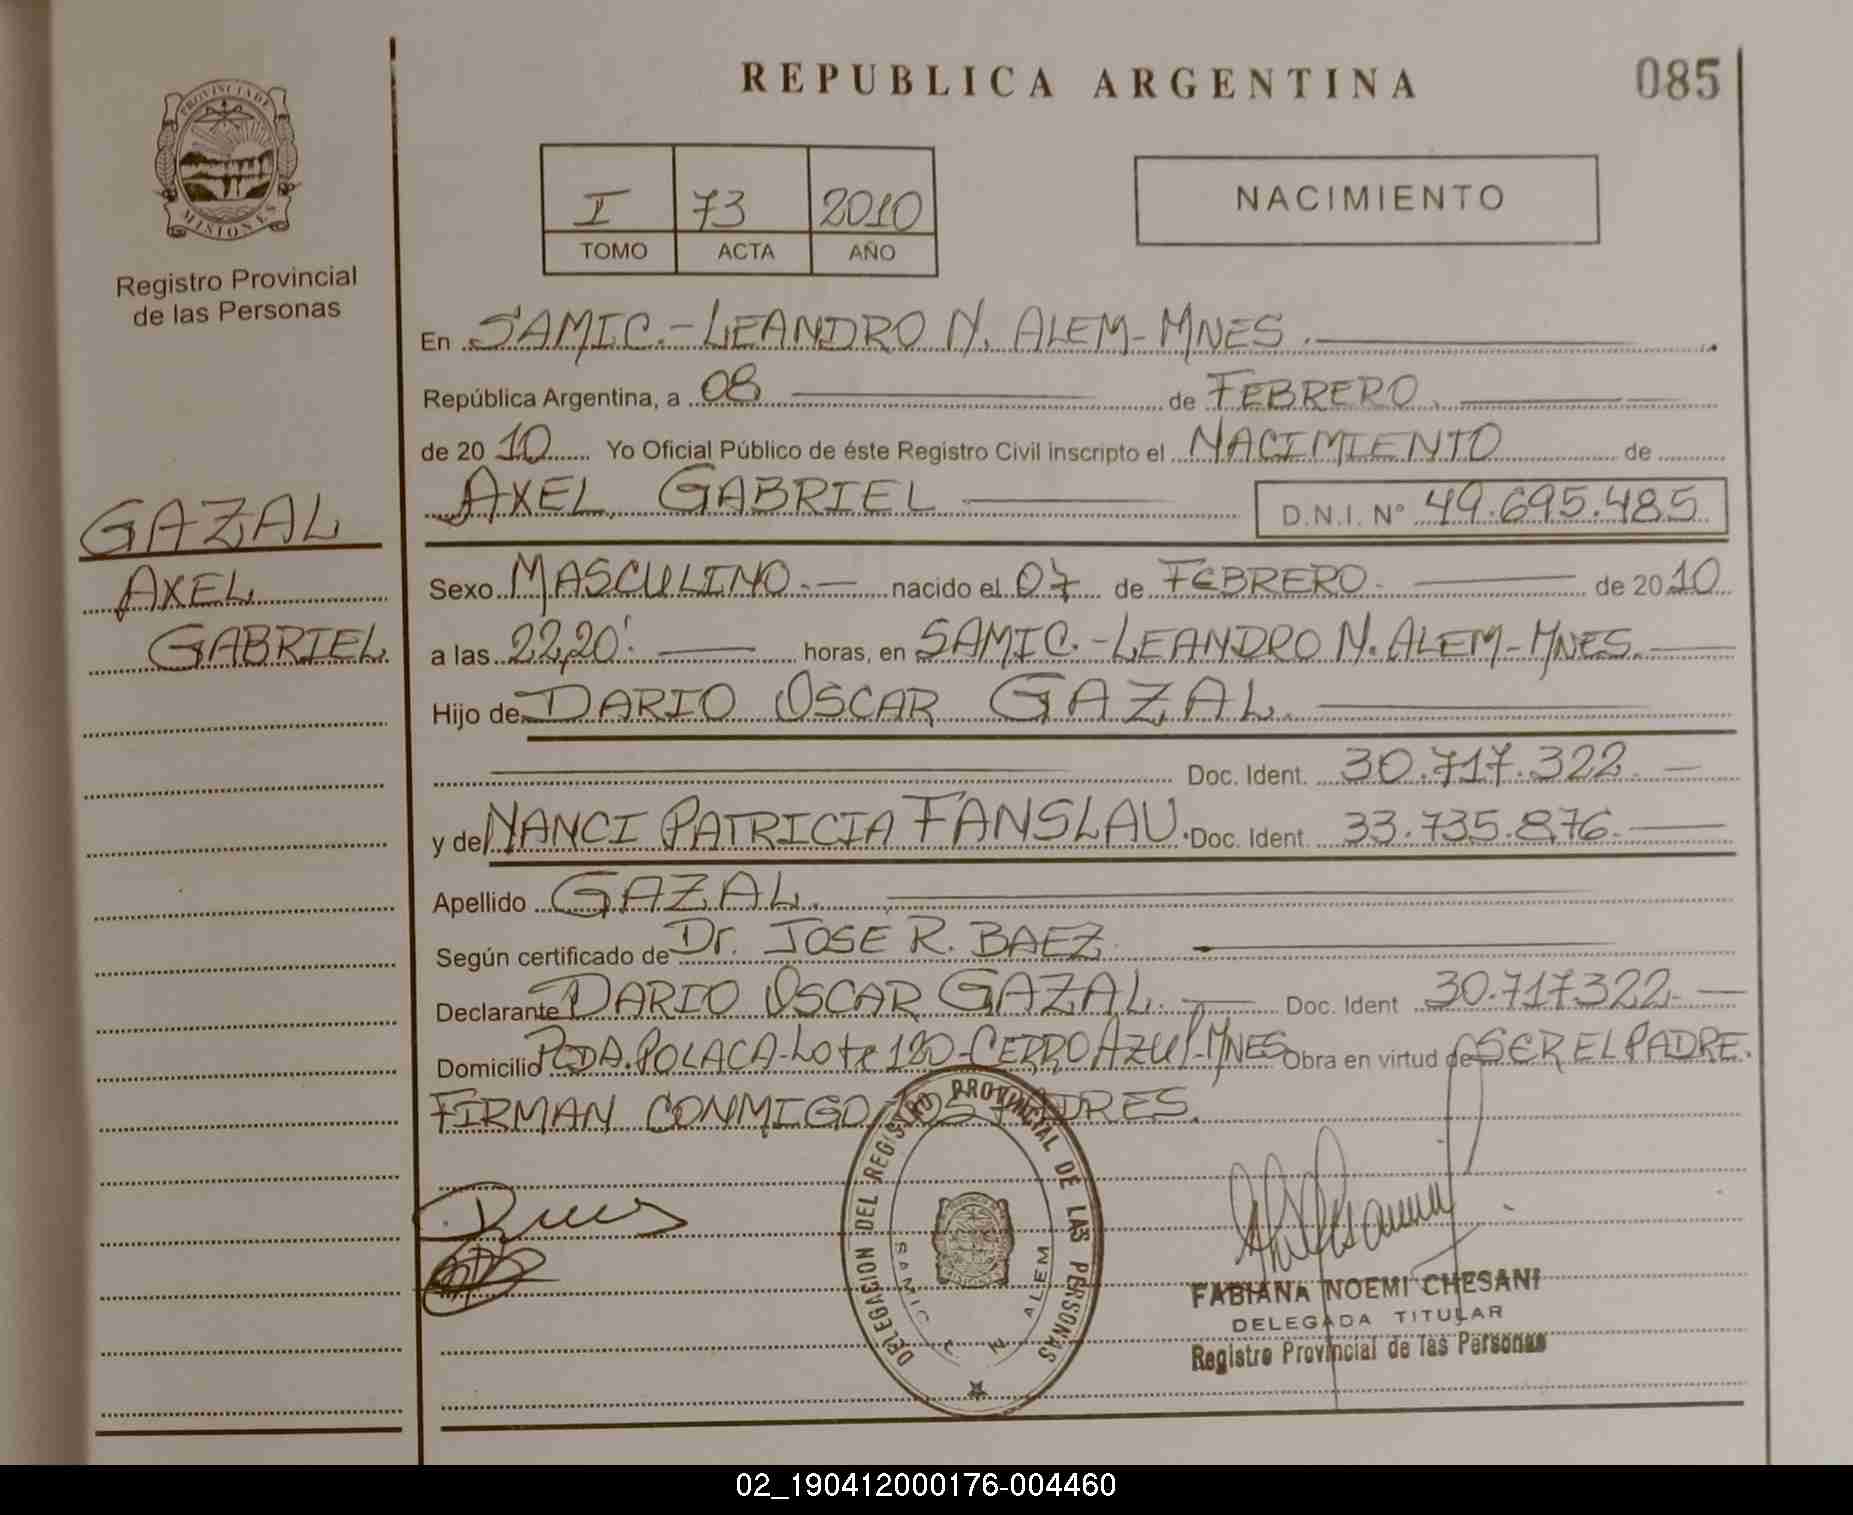 REPUBLICA ARGENTINA
085
PROVINCIA DE
MISIONES
Registro Provincial
de las Personas
I 73 2010
TOMO ACTA AÑO
NACIMIENTO
En SAMIC.-LEANDRO N. ALEM-MNES.
República Argentina, a 08 de FEBRERO.
de 20 10 Yo Oficial Público de éste Registro Civil inscripto el NACIMIENTO de
AXEL GABRIEL D.N.I. N° 49.695.485
GAZAL
AXEL
GABRIEL
Sexo MASCULINO.- nacido el 07 de FEBRERO.- de 20 10
a las 22,20'. horas, en SAMIC.-LEANDRO N. ALEM-MNES.
Hijo de DARIO OSCAR GAZAL.
Doc. Ident. 30.717.322.-
y de NANCI PATRICIA FANSLAU. Doc. Ident. 33.735.876.
Apellido GAZAL.
Según certificado de Dr. JOSE R. BAEZ.
Declarante DARIO OSCAR GAZAL. Doc. Ident 30.717.322.-
Domicilio PCDA. POLACA-Lote 120-CERRO AZUL-MNES. Obra en virtud de SER EL PADRE.
FIRMAN CONMIGO LOS PADRES.
DELEGACION DEL REGISTRO PROVINCIAL DE LAS PERSONAS
SAMIC L. N. ALEM
FABIANA NOEMI CHESANI
DELEGADA TITULAR
Registro Provincial de las Personas
02_190412000176-004460